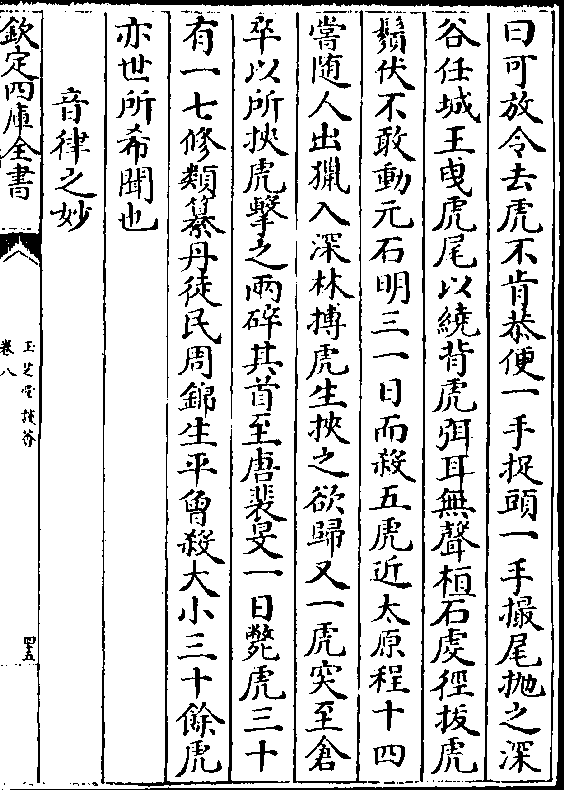 曰可放令去虎不肯恭便一手捉頭一手撮尾抛之深
谷任城王曳虎尾以繞背虎弭耳無聲桓石虔徑拔虎
鬚伏不敢動元石明三一日而殺五虎近太原程十四
嘗随人出獵入深林搏虎生挾之欲歸又一虎突至倉
卒以所挾虎擊之兩碎其首至唐裴旻一日斃虎三十
有一七修類纂丹徒民周錦生平曾殺大小三十餘虎
亦世所希聞也
音律之妙
欽定四庫全書
玉芝堂談薈
卷八
四五